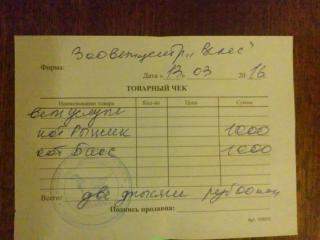 Зооветцентр „Велес"
Фирма:
Дата „ 13 " 03 20 16
ТОВАРНЫЙ ЧЕК
Наименование товара Кол-во Цена Сумма
вет услуги
кот Рыжик 1000
кот Басс 1000
Всего: две тысячи рублей
Подпись продавца: